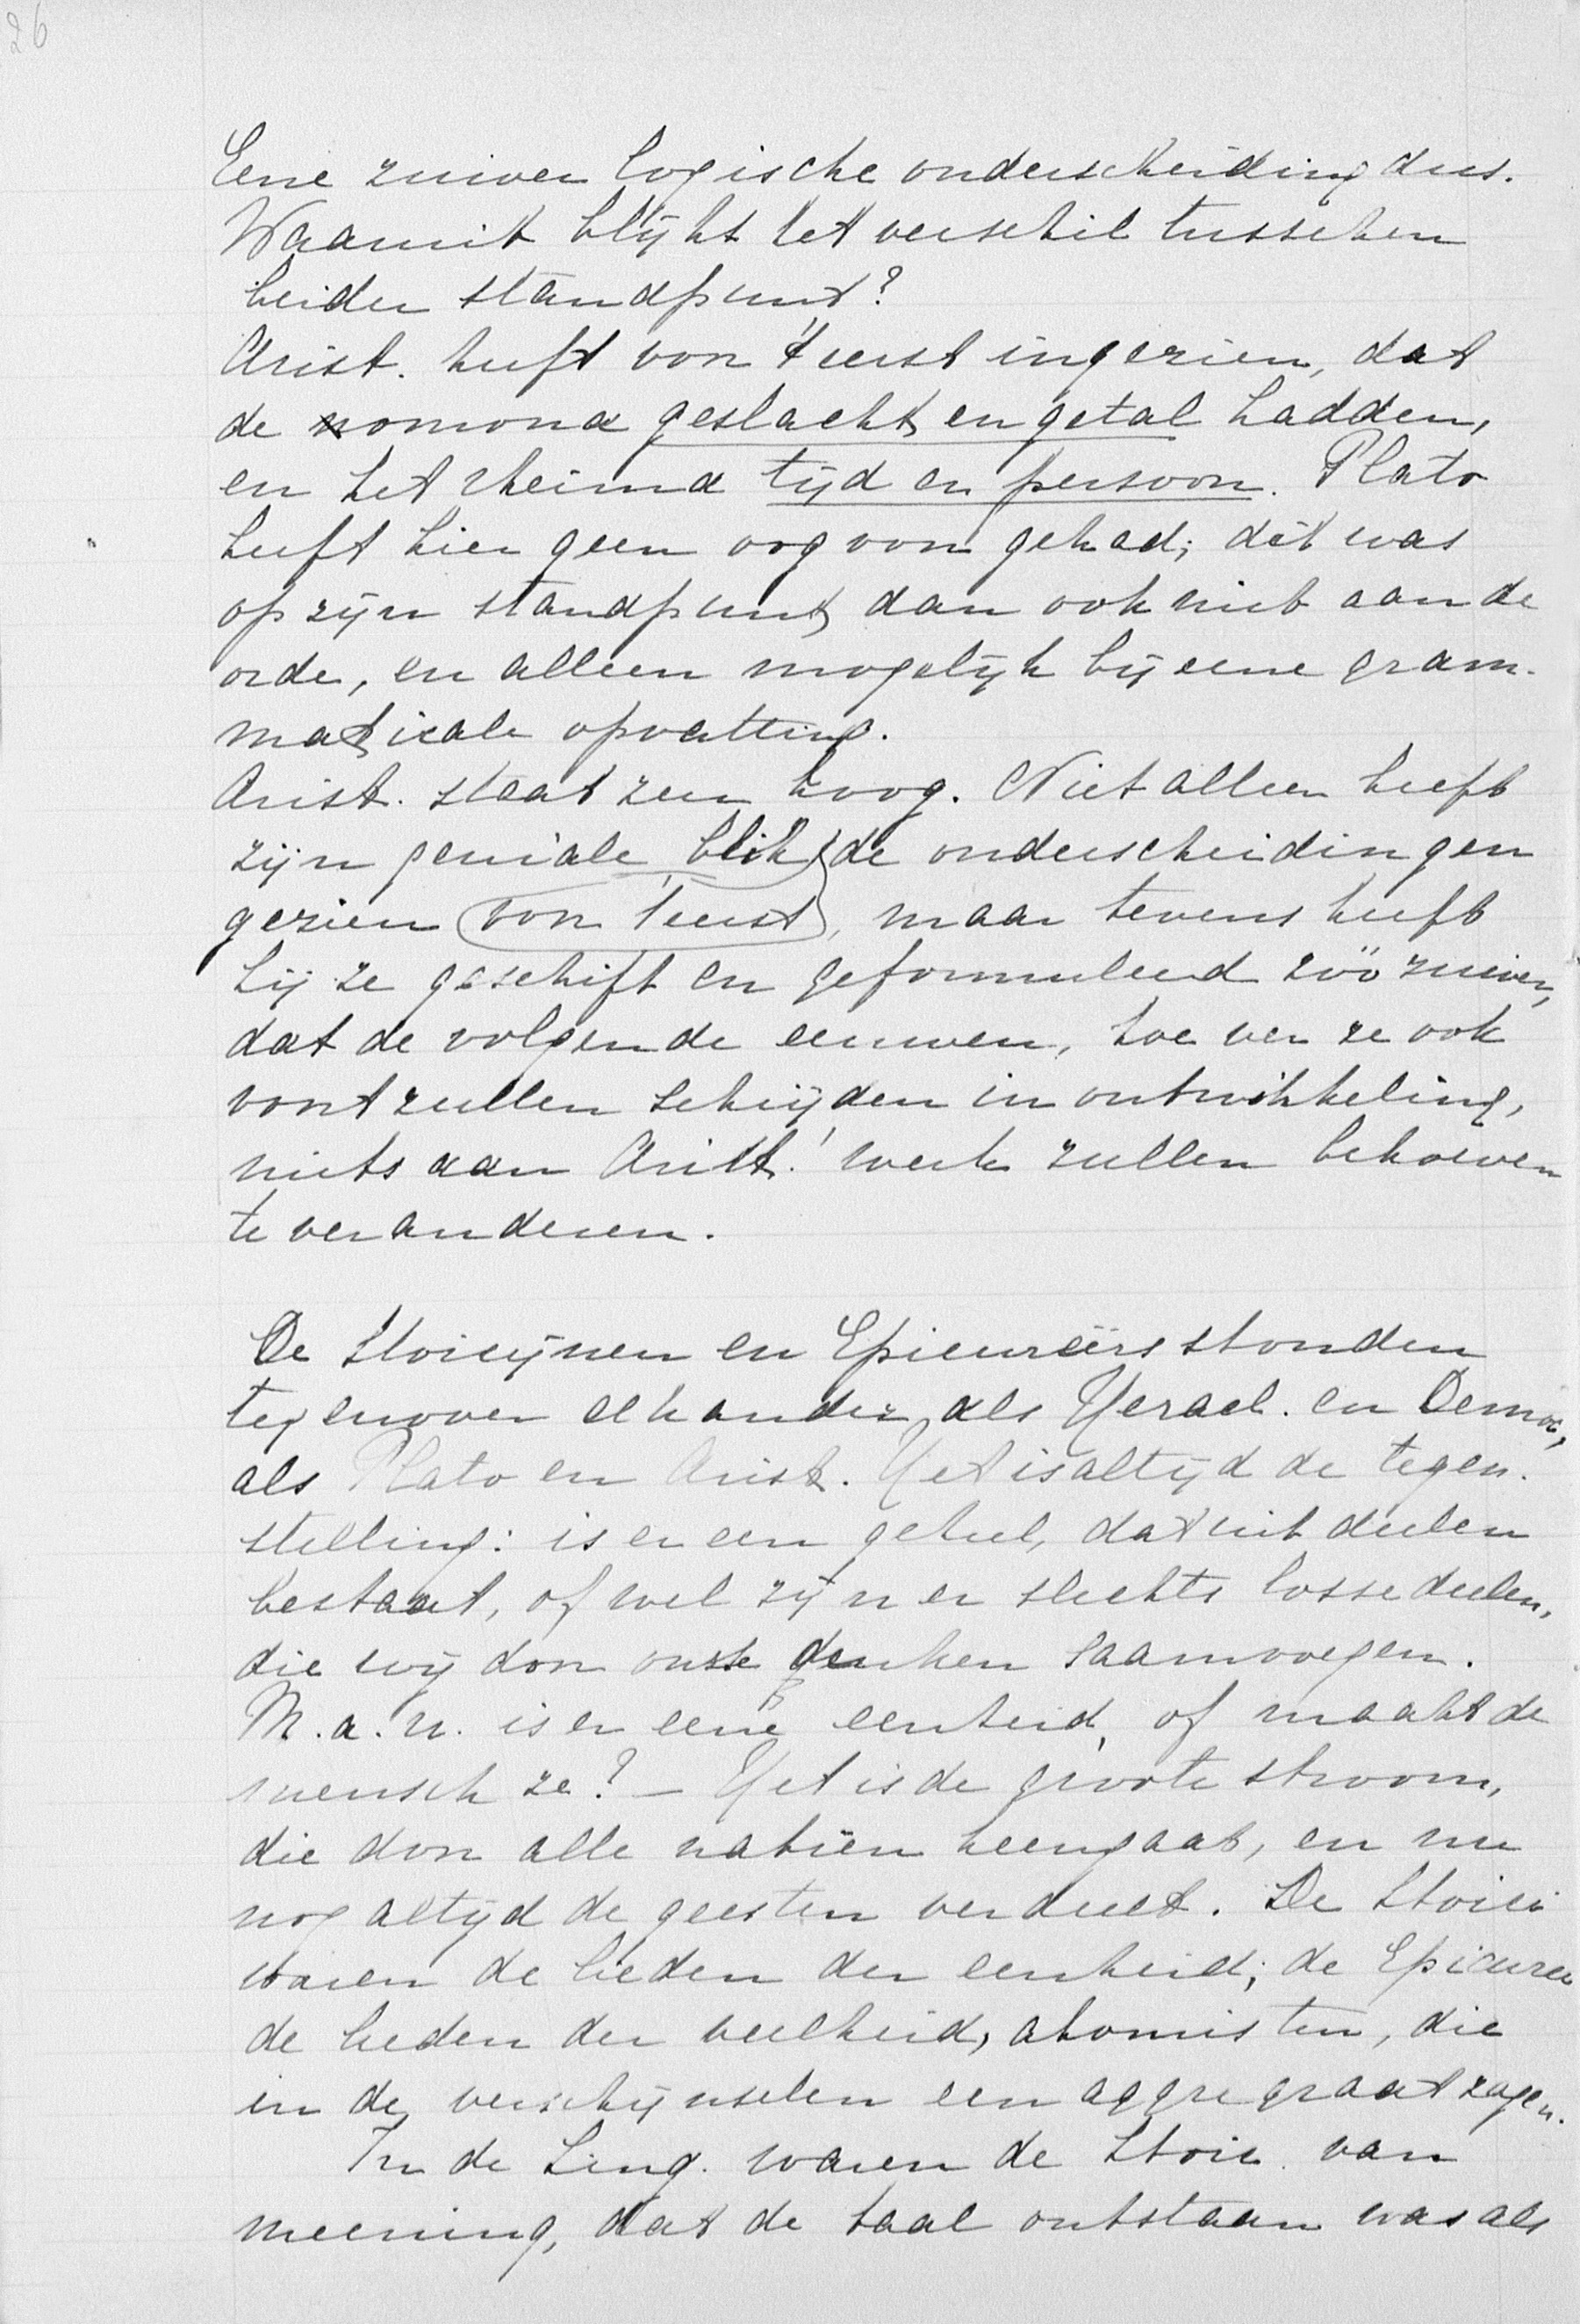 26
Eene zuiver logische onderscheiding dus.
Waaruit blijkt het verschil tusschen
beider standpunt?
Arist. heeft voor 't eerst ingezien, dat
de onoma geslacht en getal hadden,
en het rheima tijd en persoon. Plato
heeft hier geen oog voor gehad; dit was
op zijn standpunt dan ook niet aan de
orde, en alleen mogelijk bij eene gram-
maticale opvatting.
Arist. staat zeer hoog. Niet alleen heeft
zijn geniale blik de onderscheidingen
gezien voor 't eerst, maar tevens heeft
hij ze geschift en geformuleerd zóó zuiver,
dat de volgende eeuwen, hoe ver ze ook
voort zullen schrijden in ontwikkeling,
niets aan Arist.' werk zullen behoeven
te veranderen.
De Stoicijnen en Epicureërs stonden
tegenover elkander als Heracl. en Democ.,
als Plato en Arist. Het is altijd de tegen-
stelling: is er een geheel, dat uit deelen
bestaat, of wel zijn er slechts losse deelen,
die wij door ons denken saamvoegen.
M.a.w. is er eene eenheid, of maakt de
mensch ze? – Het is de groote stroom,
die door alle natiën heengaat, en nu
nog altijd de geesten verdeelt. De Stoici
waren de lieden der eenheid; de Epicuren
de lieden der veelheid, atomisten, die
in de verschijnselen een aggregraat zagen.
In de Ling. waren de Stoic. van
meening, dat de taal ontstaan was als